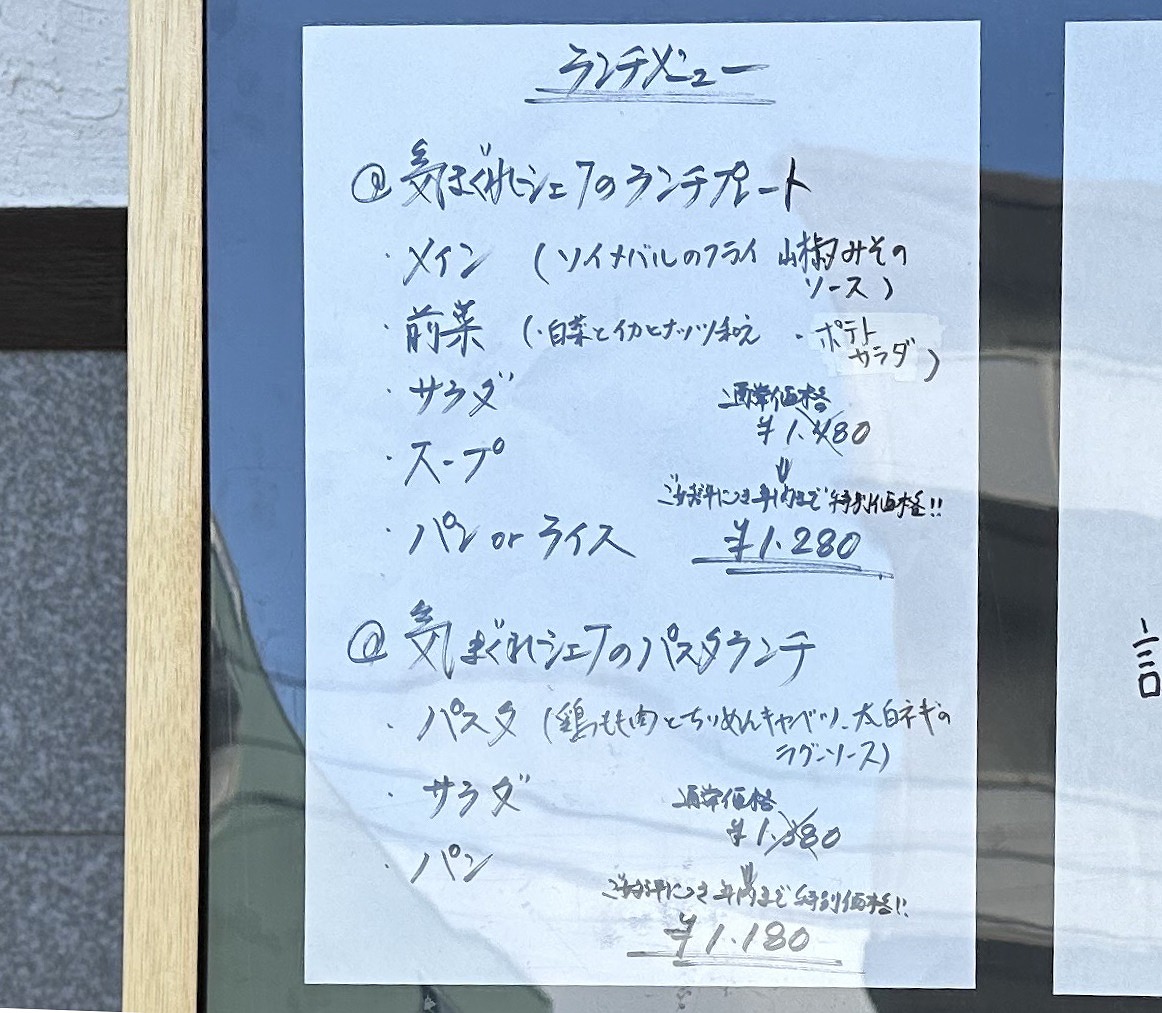 ランチメニュー
@ 気まぐれシェフのランチプレート
・メイン (ソイメバルのフライ 山椒みその
ソース)
・前菜 (・白菜とイカとナッツ和え ・ポテト
サラダ)
・サラダ
通常価格
¥1,480
・スープ
ご好評につき年内まで特別価格!!
・パン or ライス
¥1.280
@ 気まぐれシェフのパスタランチ
・パスタ (鶏もも肉とちりめんキャベツ、太白ネギの
ラグーソース)
・サラダ
通常価格
¥1,380
・パン
ご好評につき年内まで特別価格!!
¥1.180